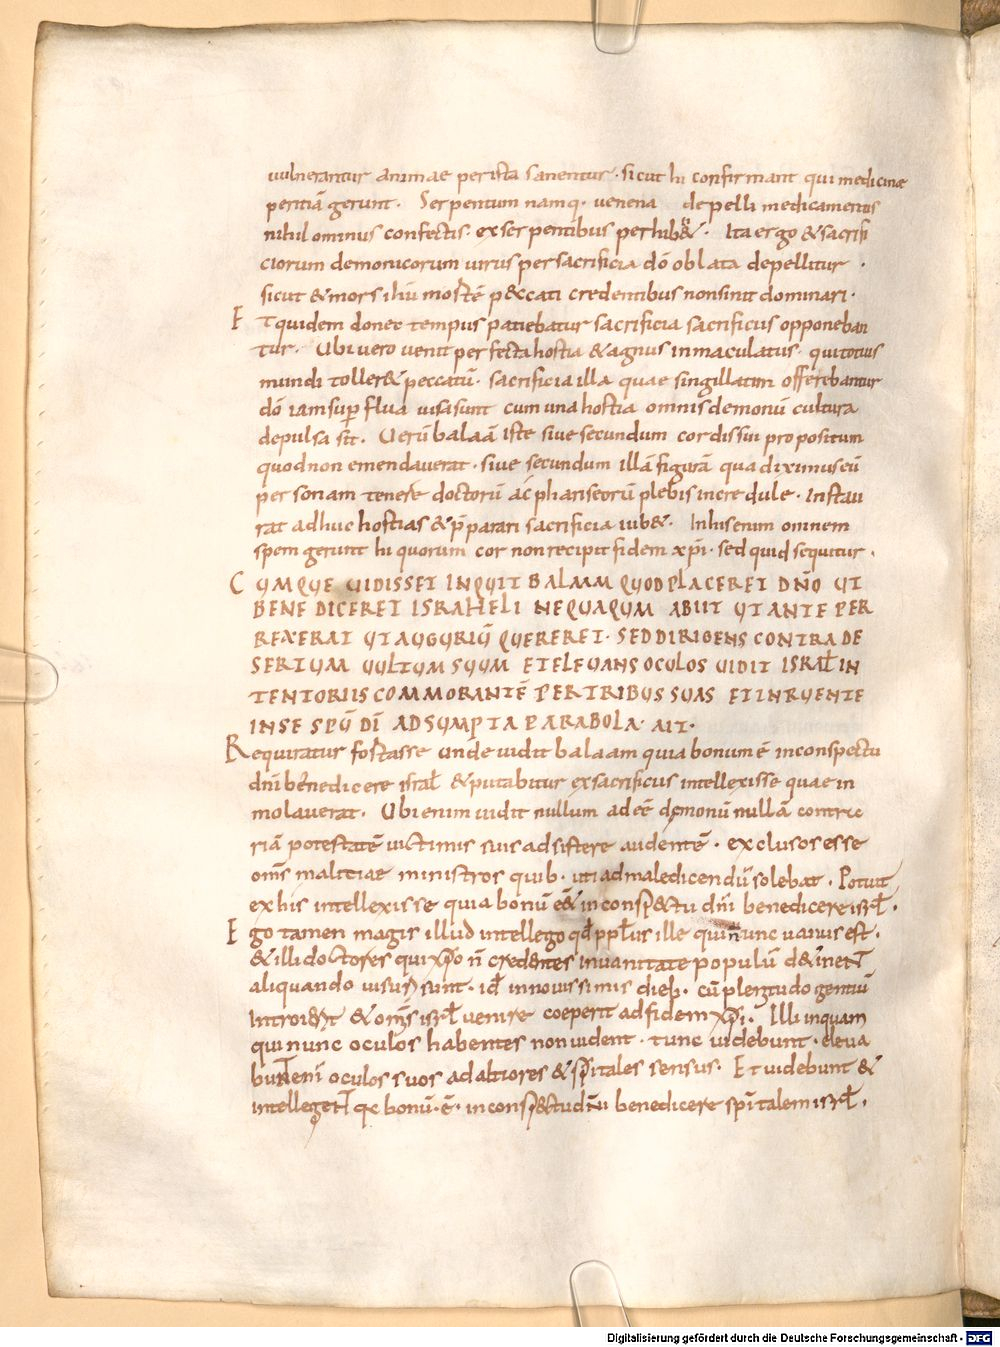 uulnerantur animae perista sanentur · sicut hi confirmant qui medicinae
peritiā gerunt · Serpentum namq· uenena depelli medicamentis
nihilominus confectis · ex serpentibus perhib& · Ita ergo & sacrifi
ciorum demonicorum uirus per sacrificia dō oblata depellitur ·
sicut & mors ihū mortē peccati credentibus non sinit dominari ·
Et quidem donec tempus patiebatur sacrificia sacrificiis opponeban
tur · Ubi uero uenit perfecta hostia & agnus inmaculatus · qui totius
mundi toller& peccatū · sacrificia illa quae singillatim offerebantur
dō iam sup flua uisa sunt cum una hostia omnis demonū cultura
depulsa st̄ · Uerū balaā iste siue secundum cordis sui propositum
quod non emendauerat · siue secundum illā figurā qua diximus eū
personam tenere doctorū ac phariseorū plebis incredule · Instau
rat adhuc hostias & p̄parari sacrificia iub& · In his enim omnem
spem gerunt hi quorum cor non recipit fidem xp̄i · sed quid sequitur ·
CUMQUE UIDISSET INQUIT BALAAM QUOD PLACERET DN̄O UT
BENEDICERET ISRAHELI NEQUAQUM ABIIT UT ANTE PER
REXERAT UT AUGURIŪ QUERERET · SED DIRIGENS CONTRA DE
SERTUM UULTUM SUUM ET ELEUANS OCULOS UIDIT ISRAƚ IN
TENTORIIS COMMORANTĒ PER TRIBUS SUAS ET INRUENTE
IN SE SPŪ DĪ ADSUMPTA PARABOLA · AIT ·
Requiratur fortasse unde uidit balaam quia bonum ē in conspectu
dn̄i benedicere israƚ & putabitur ex sacrificiis intellexisse quae in
molauerat · Ubi enim uidit nullum adeē demonū nullā contra
riā potestatē uictimis suis adsistere audentē · exclusos esse
om̄s malitiae ministros quib· uti ad maledicendū solebat · Potuit
ex his intellexisse quia bonū ē & in conspectu dn̄i benedicere isrƚ ·
Ego tamen magis illud intellego qđ ppƚus ille qui nunc uanus est ·
& illi doctores qui xp̄o n̄ credentes in uanitate populū detinent
aliquando uisuri sunt · id ē in nouissimis dieb· cū plenitudo gentiū
introierit & om̄s isrƚ uenire coeperit ad fidem xp̄i · Illi inquam
qui nunc oculos habentes non uident · tunc uidebunt · eleua
bunt enī oculos suos ad altiores & sp̄itales sensus · Et uidebunt &
intellegent qđ bonū · ē · in conspectu dn̄i benedicere sp̄italem isrƚ ·
Digitalisierung gefördert durch die Deutsche Forschungsgemeinschaft - DFG